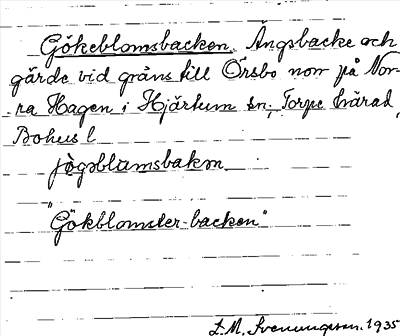 Gökeblomsbacken. Ängsbacke och
gärde vid gräns till Örsbo norr på Nor-
ra Hagen i Hjärtum sn, Torpe härad,
Bohus l
jøgsblamsbakm
"Gökblomster-backen"
L.M. Svenungsson. 1935